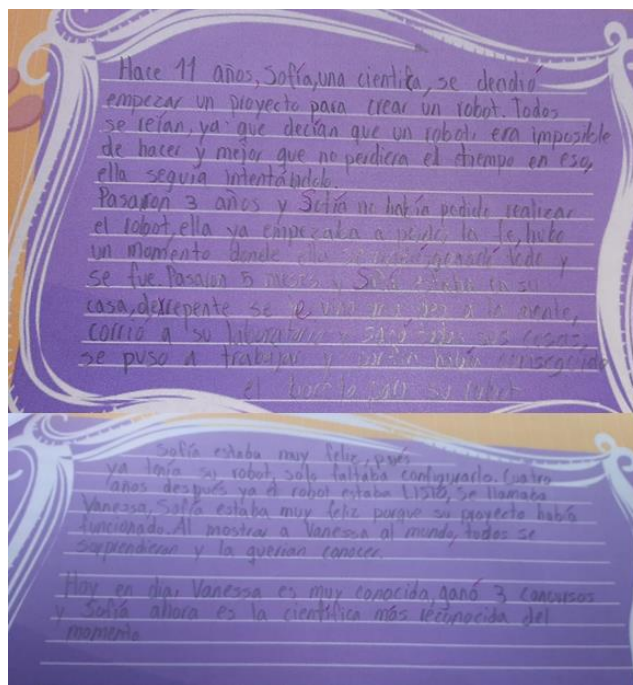 Hace 11 años, Sofía, una cientifca, se dendió
empezar un proyecto para crear un robot. Todos
se reían, ya que decían que un robot era imposible
de hacer y mejor que no perdiera el tiempo en eso,
ella seguía intentándolo.
Pasaron 3 años y Sofía no había podido realizar
el robot, ella ya empezaba a perder la fe, hubo
un momento donde ella todo y
se fue. Pasaron 5 meses y Sofía estaba en su
casa, derrepente se le vino una idea a la mente,
corrió a su laboratorio y sacó todas sus cosas,
se puso a trabajar y por fin había conseguido
el para su robot
Sofía estaba muy feliz, pues
ya tenía su robot, solo faltaba configurarlo. Cuatro
años después ya el robot estaba LISTO, se llamaba
Vanessa, Sofía estaba muy feliz porque su proyecto había
funcionado. Al mostrar a Vanessa al mundo, todos se
sorprendieron y la querían conocer.
Hoy en día, Vanessa es muy conocida, ganó 3 concursos
y Sofía ahora es la científica más reconocida del
momento